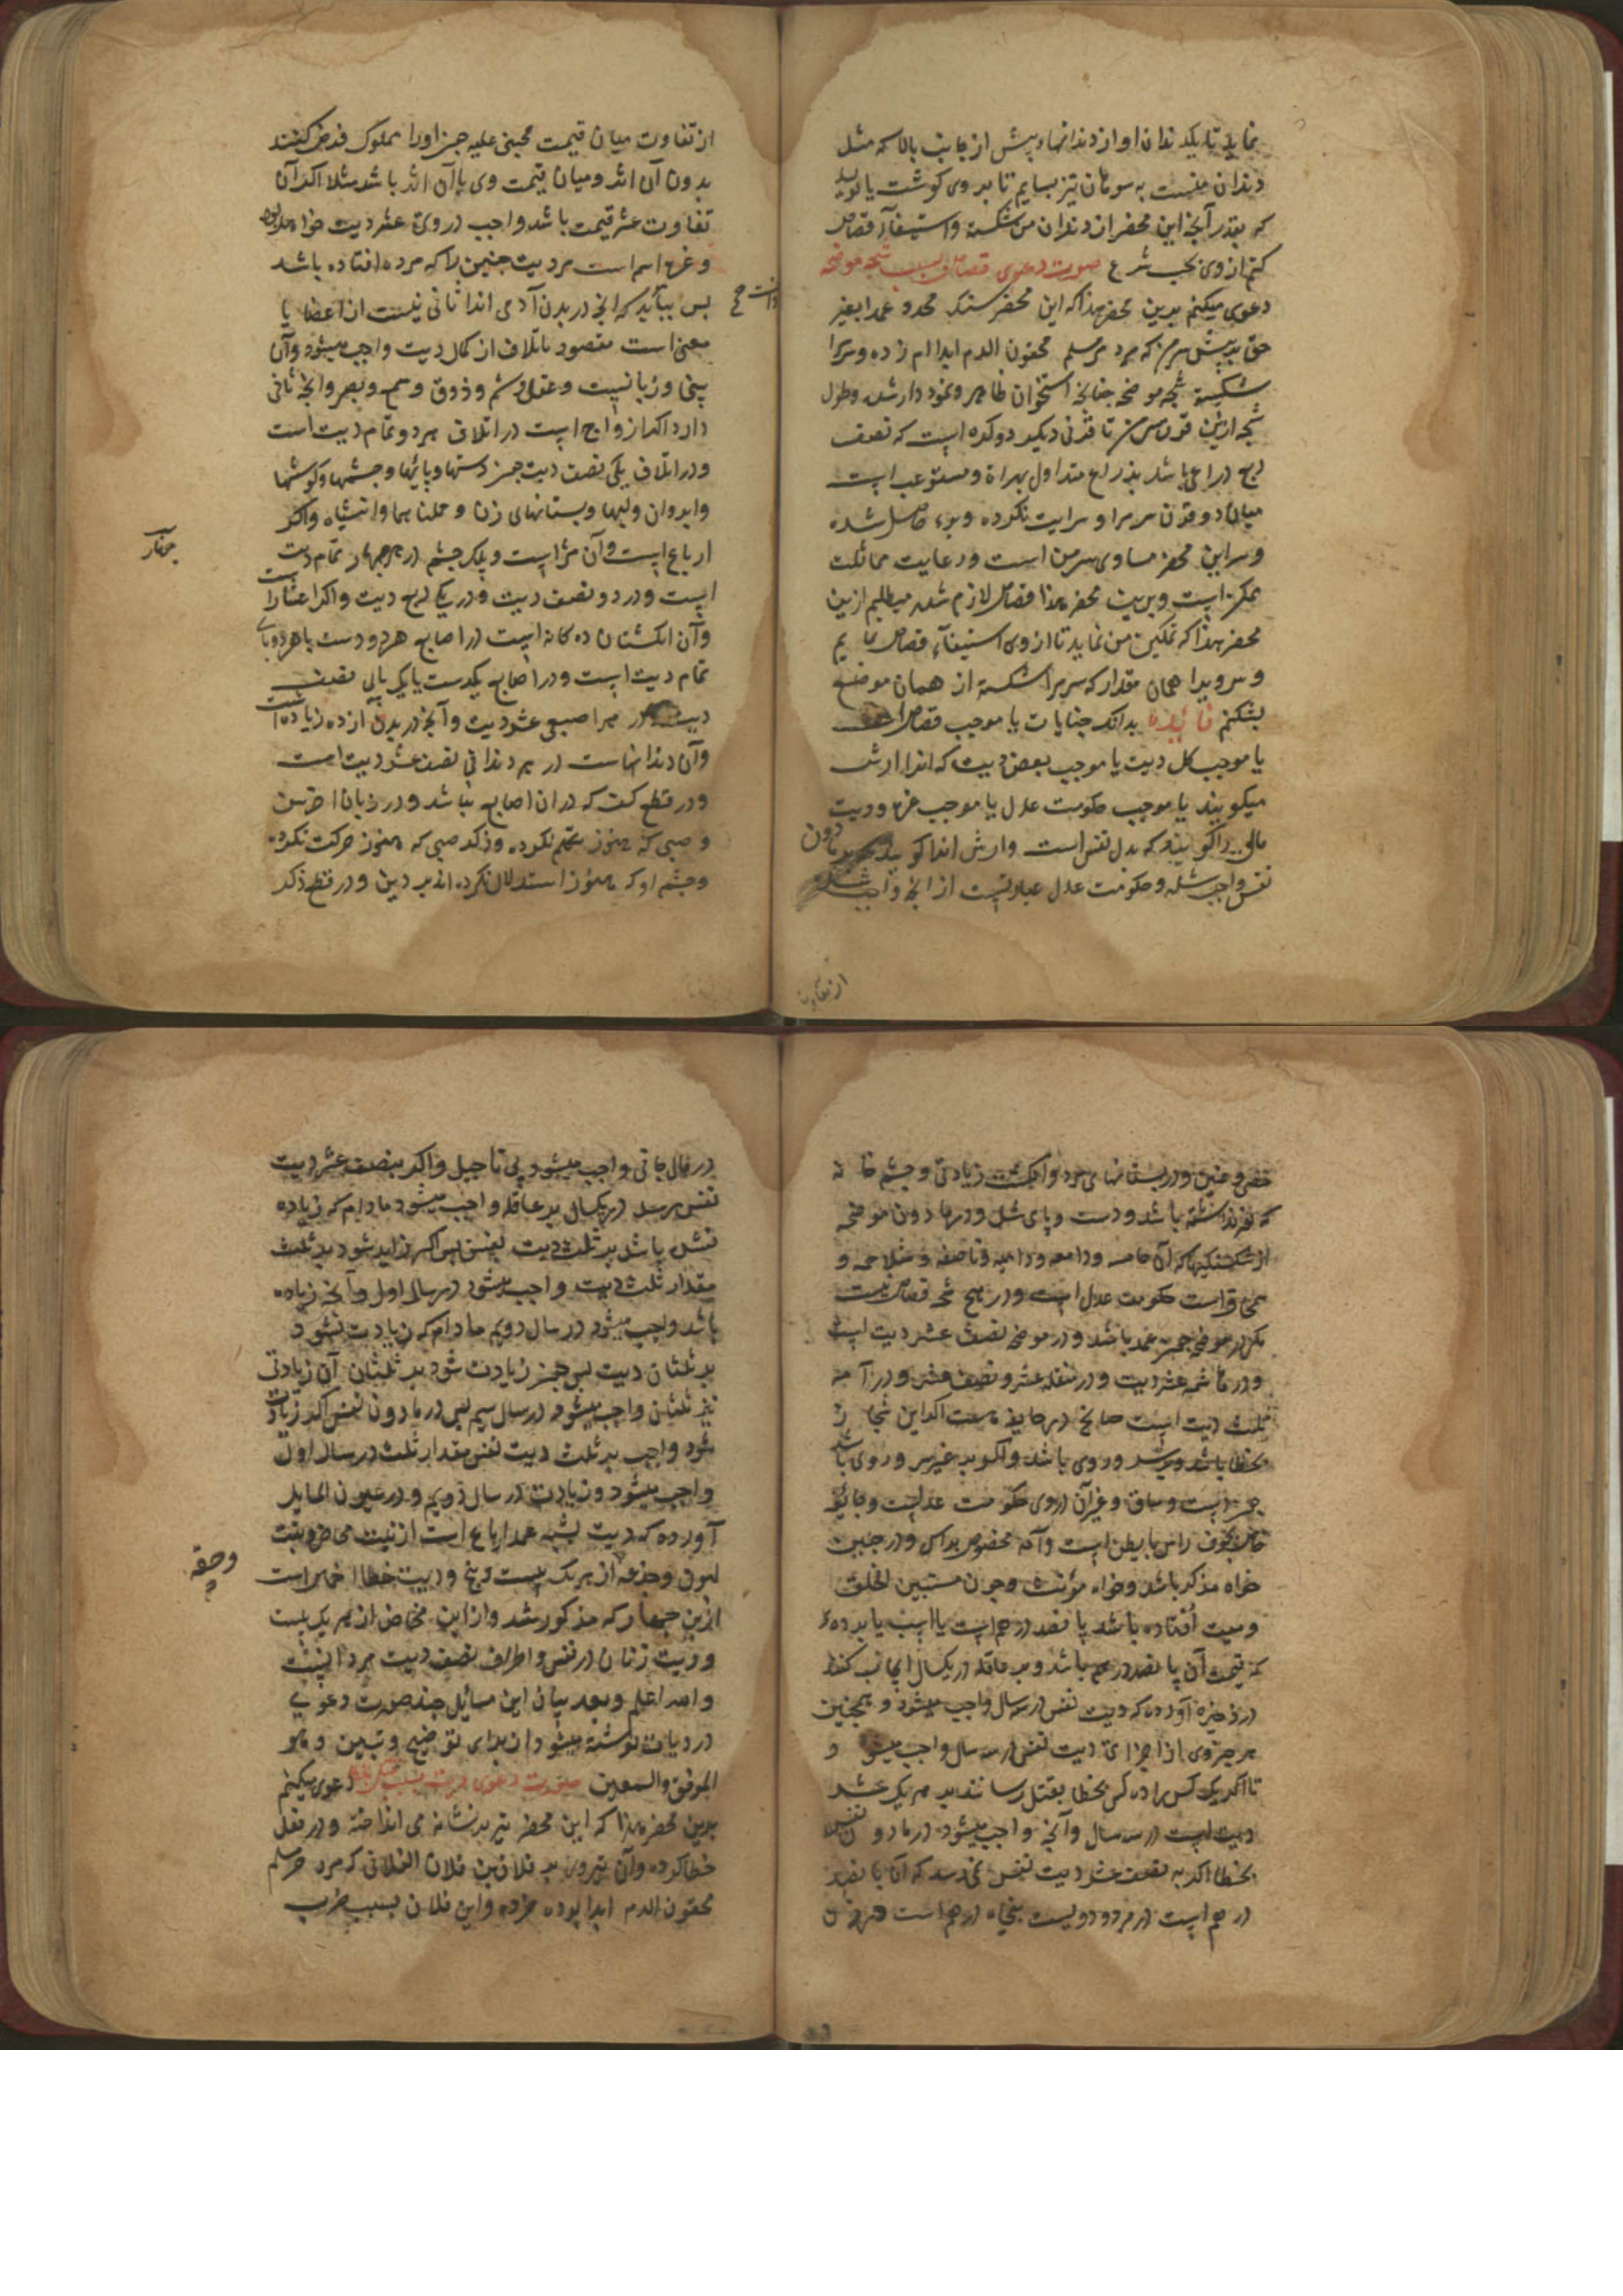 نماید تا یکدندان او از دندانهاء پیش از جانب بالا که مثل
دندان منست به سوهان تیز بسایم تا بروی کوشت یا لوید
که بقدر آنچه این محضر از دندان من شکسته و استیفآء قصاص
کنم از وی بحسب شرع صورت دعوی قصاص بسبب شجه موضحه
دعوی میکنم بدین محضر هذا که این محضر سنک محدد عمدا بغیر
حق بر پیش سر من که مرد حر مسلم محقون الدم ابدا ام زده و سر مرا
شکسته شجه موضحه چنانچه استخوان ظاهر و نمودار شده و طول
شجه از یک قرن سر من تا قرنی دیکر دو کره است که نصف
ربع ذراعی باشد بذراع متداول بهراة و مستوعب است
میان دو قرن سر مرا و سرایت نکرده و برء حاصل شده
و سر این محضر مساوی سر من است و رعایت مماثلت
ممکن است و برین محضر هذا قصاص لازم شده میطلبم ازین
محضر هذا که تمکین من نماید تا از وی استیفآء قصاص نمایم
و سر ویرا همان مقدار که سر مرا شکسته از همان موضع
بشکنم فائده بدانکه جنایات یا موجب قصاص است
یا موجب کل دیت یا موجب بعض دیت که انرا ارش
میکویند یا موجب حکومت عدل یا موجب غره و دیت
مالی را کویند که بدل نفس است و ارش انرا کویند که بر ما دون
نفس واجب شده و حکومت عدل عبارتست از انچه واجب شده
از تفاوت
از تفاوت میان قیمت مجنی علیه چون او را مملوک فرض کنند
بدون آن اثر و میان قیمت وی باآن اثر باشد مثلا اکر آن
تفاوت عشر قیمت باشد واجب در وی عشر دیت خواهد بود
و غره اسم است مر دیت جنین را که مرده افتاده باشد
دانست صح
پس بباید که انچه در بدن آدمی انرا ثانی نیست از اعضا یا
معنی است مقصود باتلاف ان کل دیت واجب میشود و آن
بینی و زبانست و عقل و شم و ذوق و سمع و بصر و انچه ثانی
دارد اکر ازواج است در اتلاف هر دو تمام دیت است
و در اتلاف یکی نصف دیت چون دستها و پایها و چشمها و کوشها
و ابروان و لبها و پستانهای زن و حلمتاهما و انثیان و اکر
ارباع است و آن مژه است و پلک چشم در هر چهار تمام دیت
چهار
است و در دو نصف دیت و در یکی ربع دیت و اکر اعشار است
و آن انکشتان ده کانه است در اصابع هر دو دست یا هر دو پای
تمام دیت است و در اصابع یکدست یا یک پای نصف
دیت و در هر اصبعی عشر دیت و آنچه در بدن از ده زیاده است
و آن دندانهاست در هر دندانی نصف عشر دیت است
و در قطع کف که در ان اصابع نباشد و در زبان اخرس
و صبی که هنوز تکلم نکرده و ذکر صبی که هنوز حرکت نکرده
و چشم او که هنوز استدلال نکرده اند بر دیدن و در قطع ذکر
خصی و عنین و در پستانهای مرد و انکشت زیادتی و چشم خانه
که نور نداشته باشد و دست و پای شل و در ما دون موضحه
از شکستکیها که آن حارصه و دامعه و دامیه و باضعه و متلاحمه و
سمحاق است حکومت عدل است و در هیچ شجه قصاص نیست
مکر در موضحه چون عمد باشد و در موضحه نصف عشر دیت است
و در هاشمه عشر دیت و در منقله عشر و نصف عشر و در آمه
ثلث دیت است چنانچه در جایفه هست اکر این شجاج از
بخطا باشد و بر سر و روی باشد و اکر بر غیر سر و روی باشد
چون دست و ساق و غیر آن در وی حکومت عدلست و جائفه
خاص بجوف راس یا بطن است و آمه مخصوص براس و در جنین
خواه مذکر باشد و خواه مؤنث و چون مستبین الخلق
و میت افتاده باشد پانصد درهم است یا اسپ یا برده
که قیمت آن پانصد درهم باشد و بر عاقله در یکسال ایجاب کنند
در ذخیره آورده که دیت نفس در سه سال واجب میشود و همچنین
هر جزوی از اجزای دیت نفس در سه سال واجب میشود
تا اکر یک کس را ده کس بخطا بقتل رسانند بر هر یک عشر
دیت است در سه سال و آنچه واجب میشود در ما دون نفس
بخطا اکر به نصف عشر دیت نفس نمی رسد که آن پانصد
درهم است در مرد و دویست پنجاه درهم است در زن
در مال جانی واجب میشود بی تاجیل و اکر بنصف عشر دیت
نفس برسد در یکسال بر عاقله واجب میشود مادام که زیاده
نشده باشد بر ثلث دیت نفس پس اکر زاید شود بر ثلث
مقدار ثلث دیت واجب میشود در سال اول و آنچه زیاده
باشد واجب میشود در سال دویم مادام که زیادت نشود
بر ثلثان دیت پس چون زیادت شود بر ثلثان آن زیادتی
نیز ثلثان واجب میشود در سال سیم پس در ما دون نفس اکر زیادت
شود واجب بر ثلث دیت نفس مقدار ثلث در سال اول
واجب میشود و زیادت در سال دویم و در عیون المسایل
آورده که دیت شبه عمد ارباع است از بنت مخاض و بنت
لبون و جذعه از هر یک بیست و پنج و دیت خطا اخماس است
وحقه
ازین چهار که مذکور شد و از ابن مخاض از هر یک بیست
و دیت زنان در نفس و اطراف نصف دیت مردانست
و الله اعلم و بعد بیان این مسایل چند صورت دعوی
در دیات نوشته میشود از برای توضیح و تبیین و هو
الموفق و المعین صورت دعوی دیت بسبب قتل خطا دعوی میکنم
برین محضر هذا که این محضر تیر بر نشانه می انداخته و در فعل
خطا کرده و آن تیر وی بر فلان بن فلان الفلانی که مرد حر مسلم
محقون الدم ابدا بوده خورده و این فلان بسبب ضرب